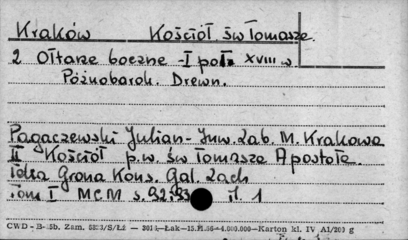 Kraków Kościół św Tomasza.
2 Ołtarze boczne - I poł. XVIII w.
Późnobarok. Drewn.
Pagaczewski Julian - Inw. Zab. M. Krakowa
II Kościół p.w. św Tomasza Apostoła
Teka Grona Kons. Gal. Zach
Tom I MCM s. 92, 93 il. 1
CWD - B- 5b. Zam. S/Łż — 4.000.000—Karton kl. IV A1/200 g